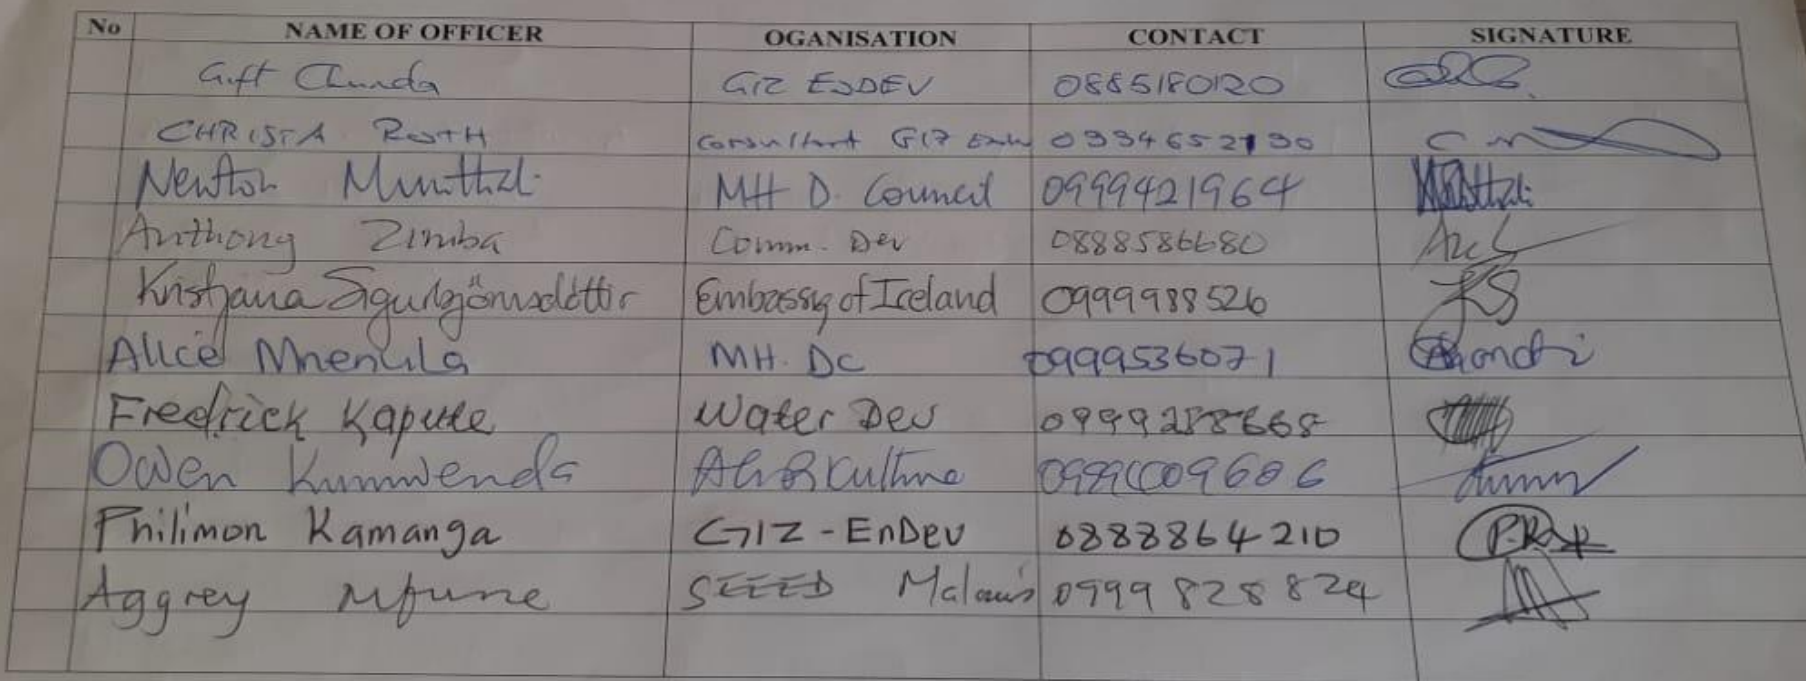 No NAME OF OFFICER OGANISATION CONTACT SIGNATURE
Gift Chunda GIZ ENDEV 0885180120
CHRISTA ROTH Consultant GIZ 0994652130
Newton Munthali MH D. Council 0999421964
Anthony Zimba Comm. Dev 0888586680
Kristjana Sigurbjörnsdóttir Embassy of Iceland 0999988526
Alice Mhenula MH. DC 0999536071
Fredrick Kapute Water Dev 0999288668
Owen Kumwenda Agriculture
Philimon Kamanga GIZ-EnDev 0888864210
Aggrey Mfune Malawi 0999828824